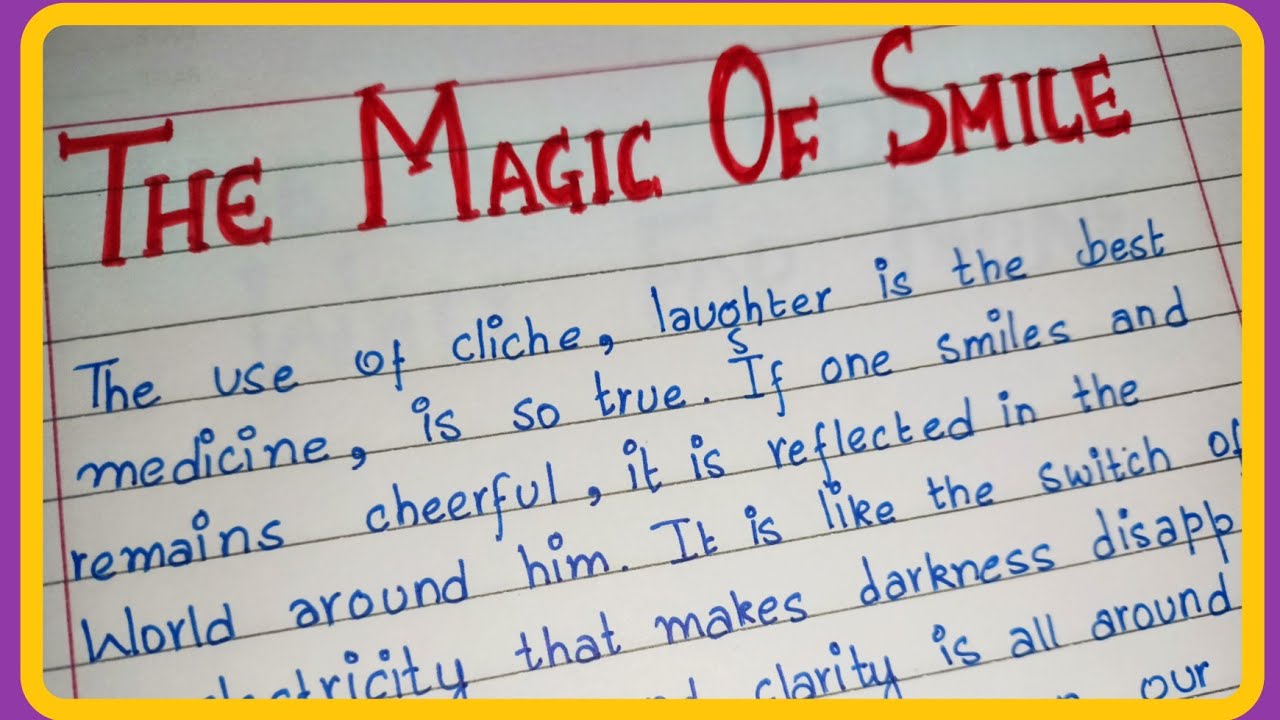 THE MAGIC OF SMILE
The use of cliche, laughter is the best
medicine, is so true. If one smiles and
remains cheerful, it is reflected in the
World around him. It is like the switch of
that makes darkness
clarity is all around
our